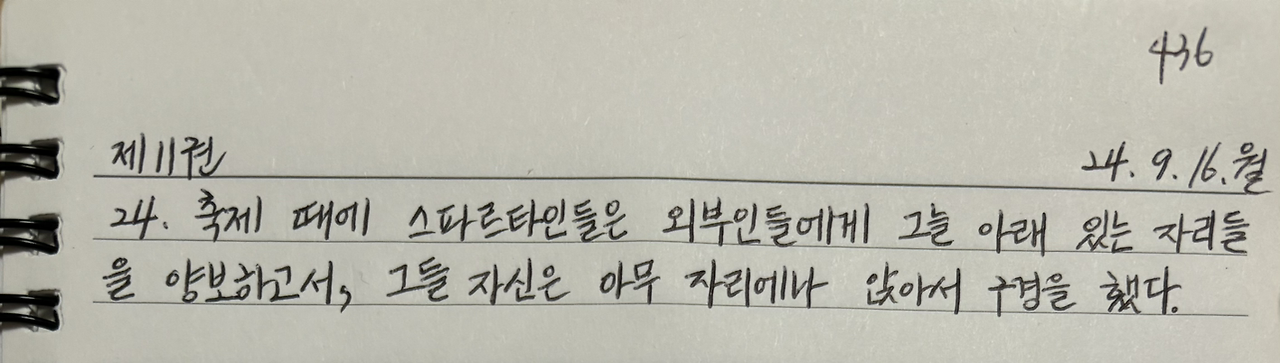 436
제11권 24. 9. 16. 월
24. 축제 때에 스파르타인들은 외부인들에게 그늘 아래 있는 자리들
을 양보하고서, 그들 자신은 아무 자리에나 앉아서 구경을 했다.